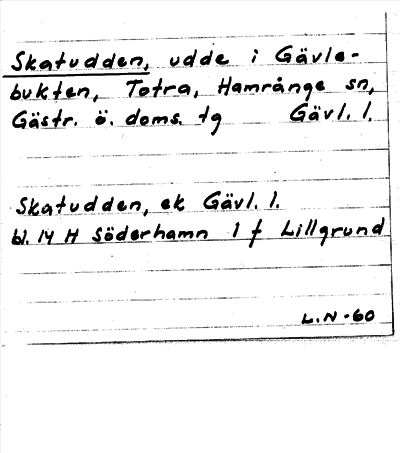 Skatudden, udde i Gävle-
bukten, Totra, Hamrånge sn,
Gästr. ö. doms. tg Gävl. l.
Skatudden, ek Gävl. l.
bl. 14 H Söderhamn 1 f Lillgrund
L.N-60